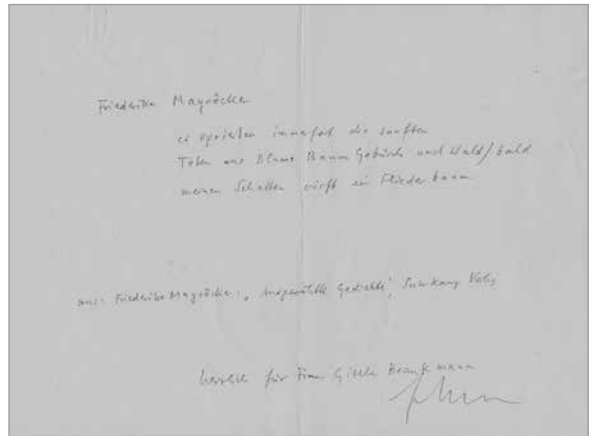 Friederike Mayröcker
es sprießen immerfort die sanften
Toten aus Blume Baum Gebüsch und Wald / bald
meinen Schatten wirft ein Fliederbaum
aus: Friederike Mayröcker: „Ausgewählte Gedichte“, Suhrkamp Verlag
herzlich für Frau Gisela